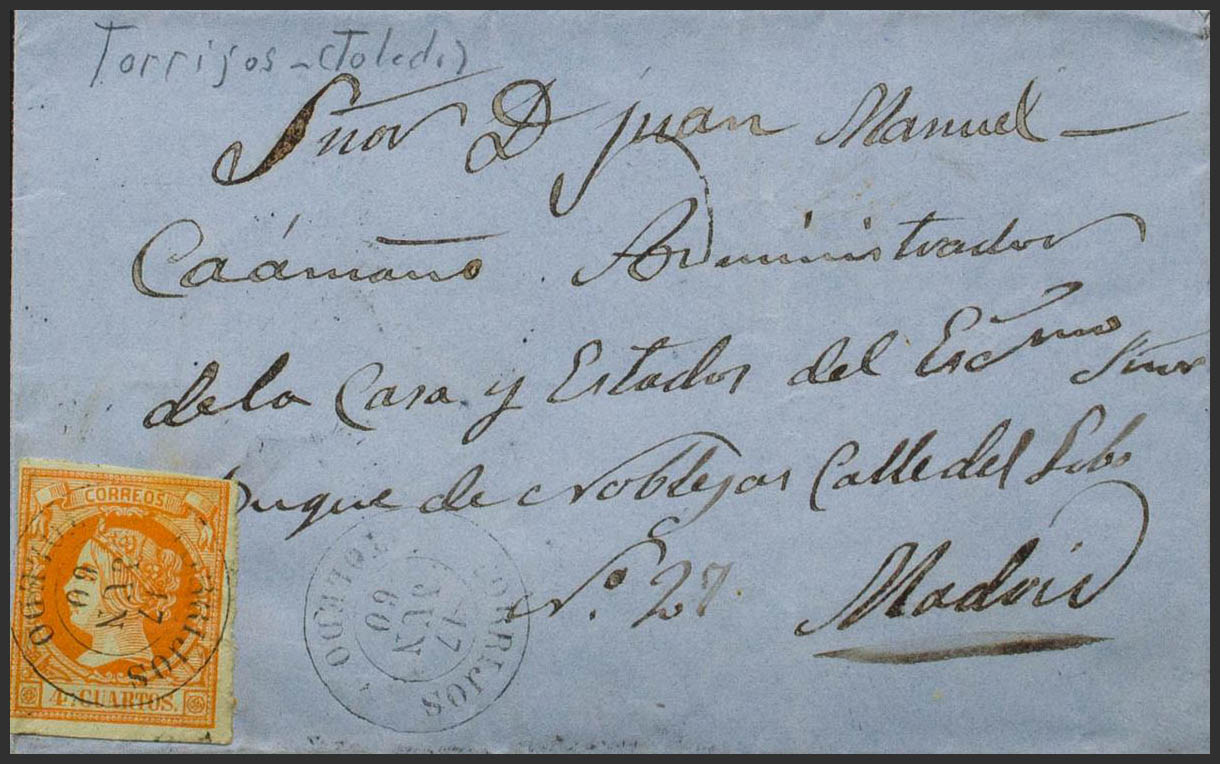 Torrijos - (Toledo)
Sñor D Juan Manuel
Caámaño Administrador
de la Casa y Estados del Escmo Sñor
Duque de Noblejas Calle del Lobo
Nº 27. Madrid
CORREOS
4 CUARTOS.
TORRIJOS
17 JUN 60
TOLEDO
TORRIJOS
17 JUN 60
TOLEDO